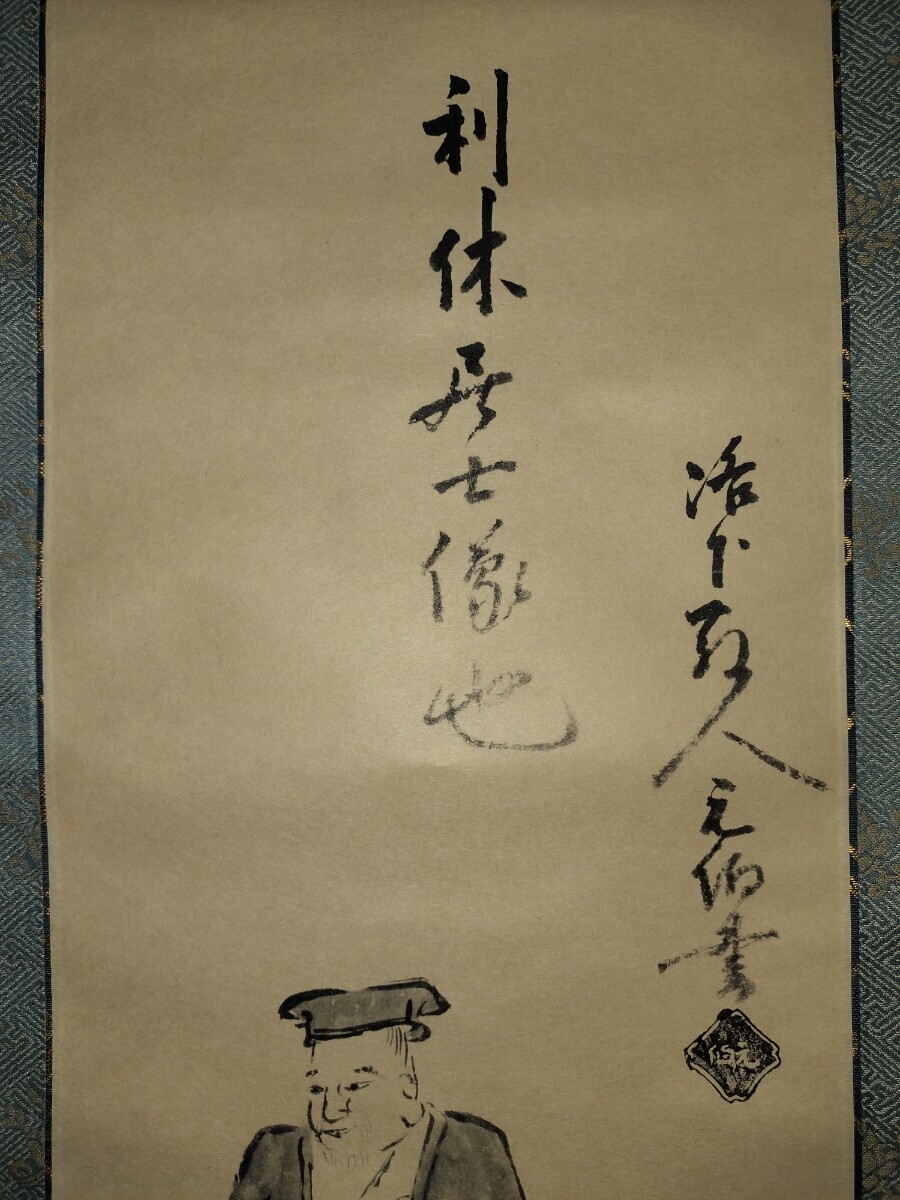 利休居士像也
洛下散人元伯書
元伯